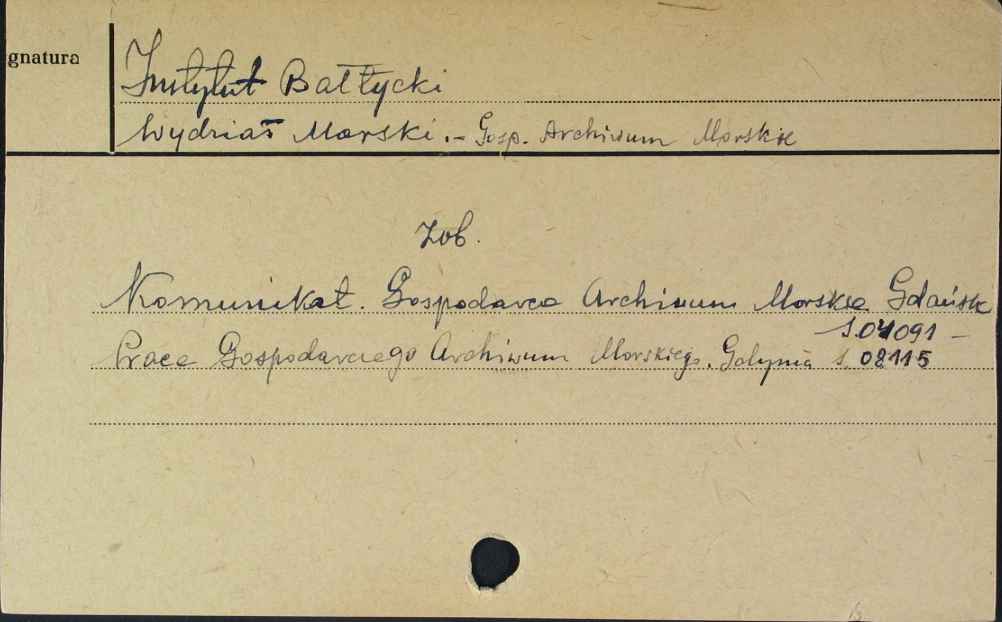 gnatura
Instytut Bałtycki
Wydział Morski. - Gosp. Archiwum Morskie
Zob.
Komunikat. Gospodarcze Archiwum Morskie Gdańsk
S.04091 -
Prace Gospodarczego Archiwum Morskiego. Gdynia S. 08115